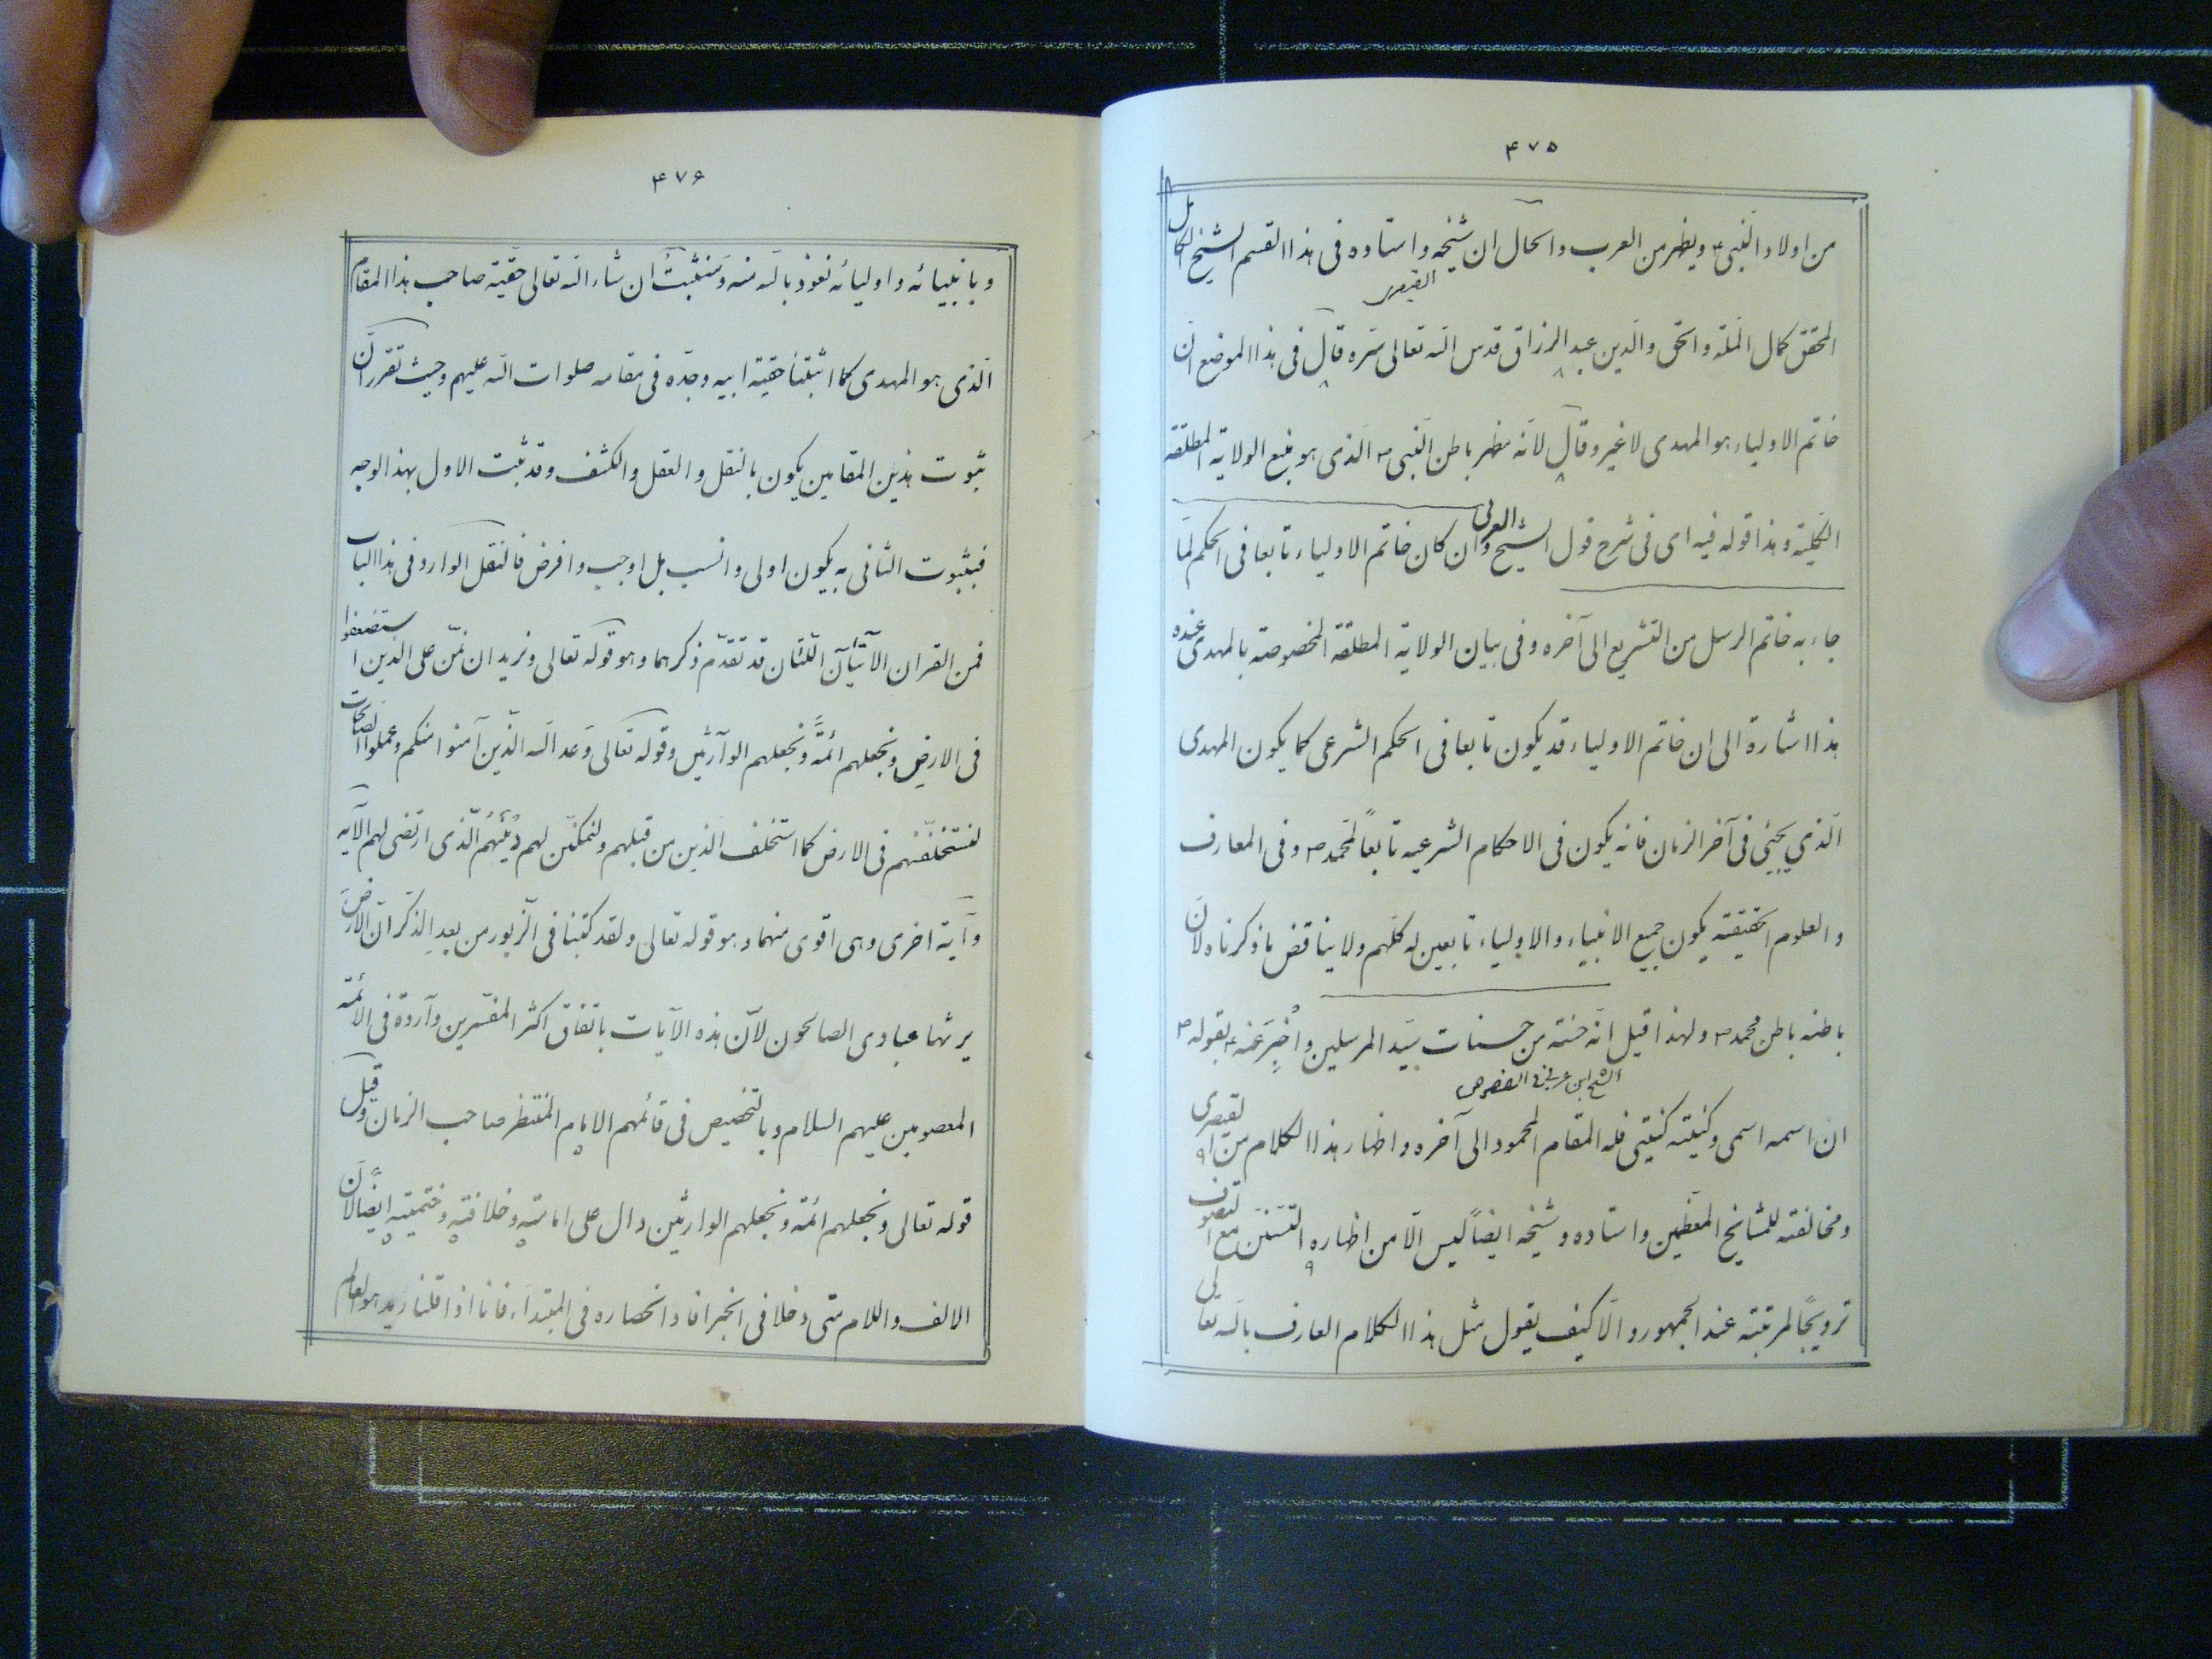 ۴۷۵
من اولاد النبی ۴ ویظهر من العرب والحال ان شیخه واستاده فی هذا القسم الشیخ الکامل
القیصری
المحقق کمال الملة والحق والدین عبد الرزاق قدس الله تعالی سره قال فی هذا الموضع ان
خاتم الاولیاء هو المهدی لا غیر وقال لانه مظهر باطن النبی ص الذی هو منبع الولایة المطلقة
العربی
الکلیة وهذا قوله فیه ای فی شرح قول الشیخ وان کان خاتم الاولیاء تابعا فی الحکم لما
جاء به خاتم الرسل من التشریع الی آخره وفی بیان الولایة المطلقة المخصوصة بالمهدی عنده
هذا اشارة الی ان خاتم الاولیاء قد یکون تابعا فی الحکم الشرعی کما یکون المهدی
الذی یجیئ فی آخر الزمان فانه یکون فی الاحکام الشرعیه تابعاً لمحمد ص وفی المعارف
والعلوم الحقیقة یکون جمیع الانبیاء والاولیاء تابعین له کلهم ولا یناقض ما ذکرناه لان
باطنه باطن محمد ص ولهذا قیل انه حسنة من حسنات سید المرسلین واُخبِرَ عنه ۴ بقوله ص
الشیخ ابن عربی فی الفصوص
ان اسمه اسمی وکنیته کنیتی فله المقام المحمود الی آخره واظهار هذا الکلام من القیصری
ومخالفته للمشایخ المعظمین واستاده وشیخه ایضاً لیس الا من اظهاره التسنن مع التصوف
ترویجاً لمرتبته عند الجمهور والا کیف یقول مثل هذا الکلام العارف بالله تعالی
۴۷۶
وبانبیائه واولیائه نعوذ بالله منه وسنثبتُ ان شاء الله تعالی حقیة صاحب هذا المقام
الذی هو المهدی کما اثبتنا حقیة ابیه وجده فی مقامه صلوات الله علیهم وحیث تقرر ان
ثبوت هذین المقامین یکون بالنقل والعقل والکشف وقد ثبت الاول بهذا الوجه
فبثبوت الثانی به یکون اولی وانسب بل اوجب وافرض فالنقل الوارد فی هذا الباب
فمن القران الآیتان اللتان قد تقدم ذکرهما وهو قوله تعالی ونرید ان نمن علی الذین استضعفوا
فی الارض ونجعلهم ائمةً ونجعلهم الوارثین وقوله تعالی وَعد الله الذین آمنوا منکم وعملوا الصالحات
لنستخلفنهم فی الارض کما استخلف الذین من قبلهم ولنمکنن لهم دینَهُم الذی ارتضی لهم الآیه
وآیة اخری وهی اقوی منهما وهو قوله تعالی ولقد کتبنا فی الزبور من بعدِ الذکر انّ الارضَ
یرثها عبادی الصالحون لان هذه الآیات باتفاق اکثر المفسرین واردة فی الائمة
المعصومین علیهم السلام وبالتخصیص فی قائمهم الامام المنتظر صاحب الزمان وقیل
قوله تعالی ونجعلهم ائمة ونجعلهم الوارثین دال علی امامته وخلافته وختمیته ایضاً لان
الالف واللام متی دخلا فی الخبر افاد انحصاره فی المبتداء فانا اذا قلنا زید هو العالم